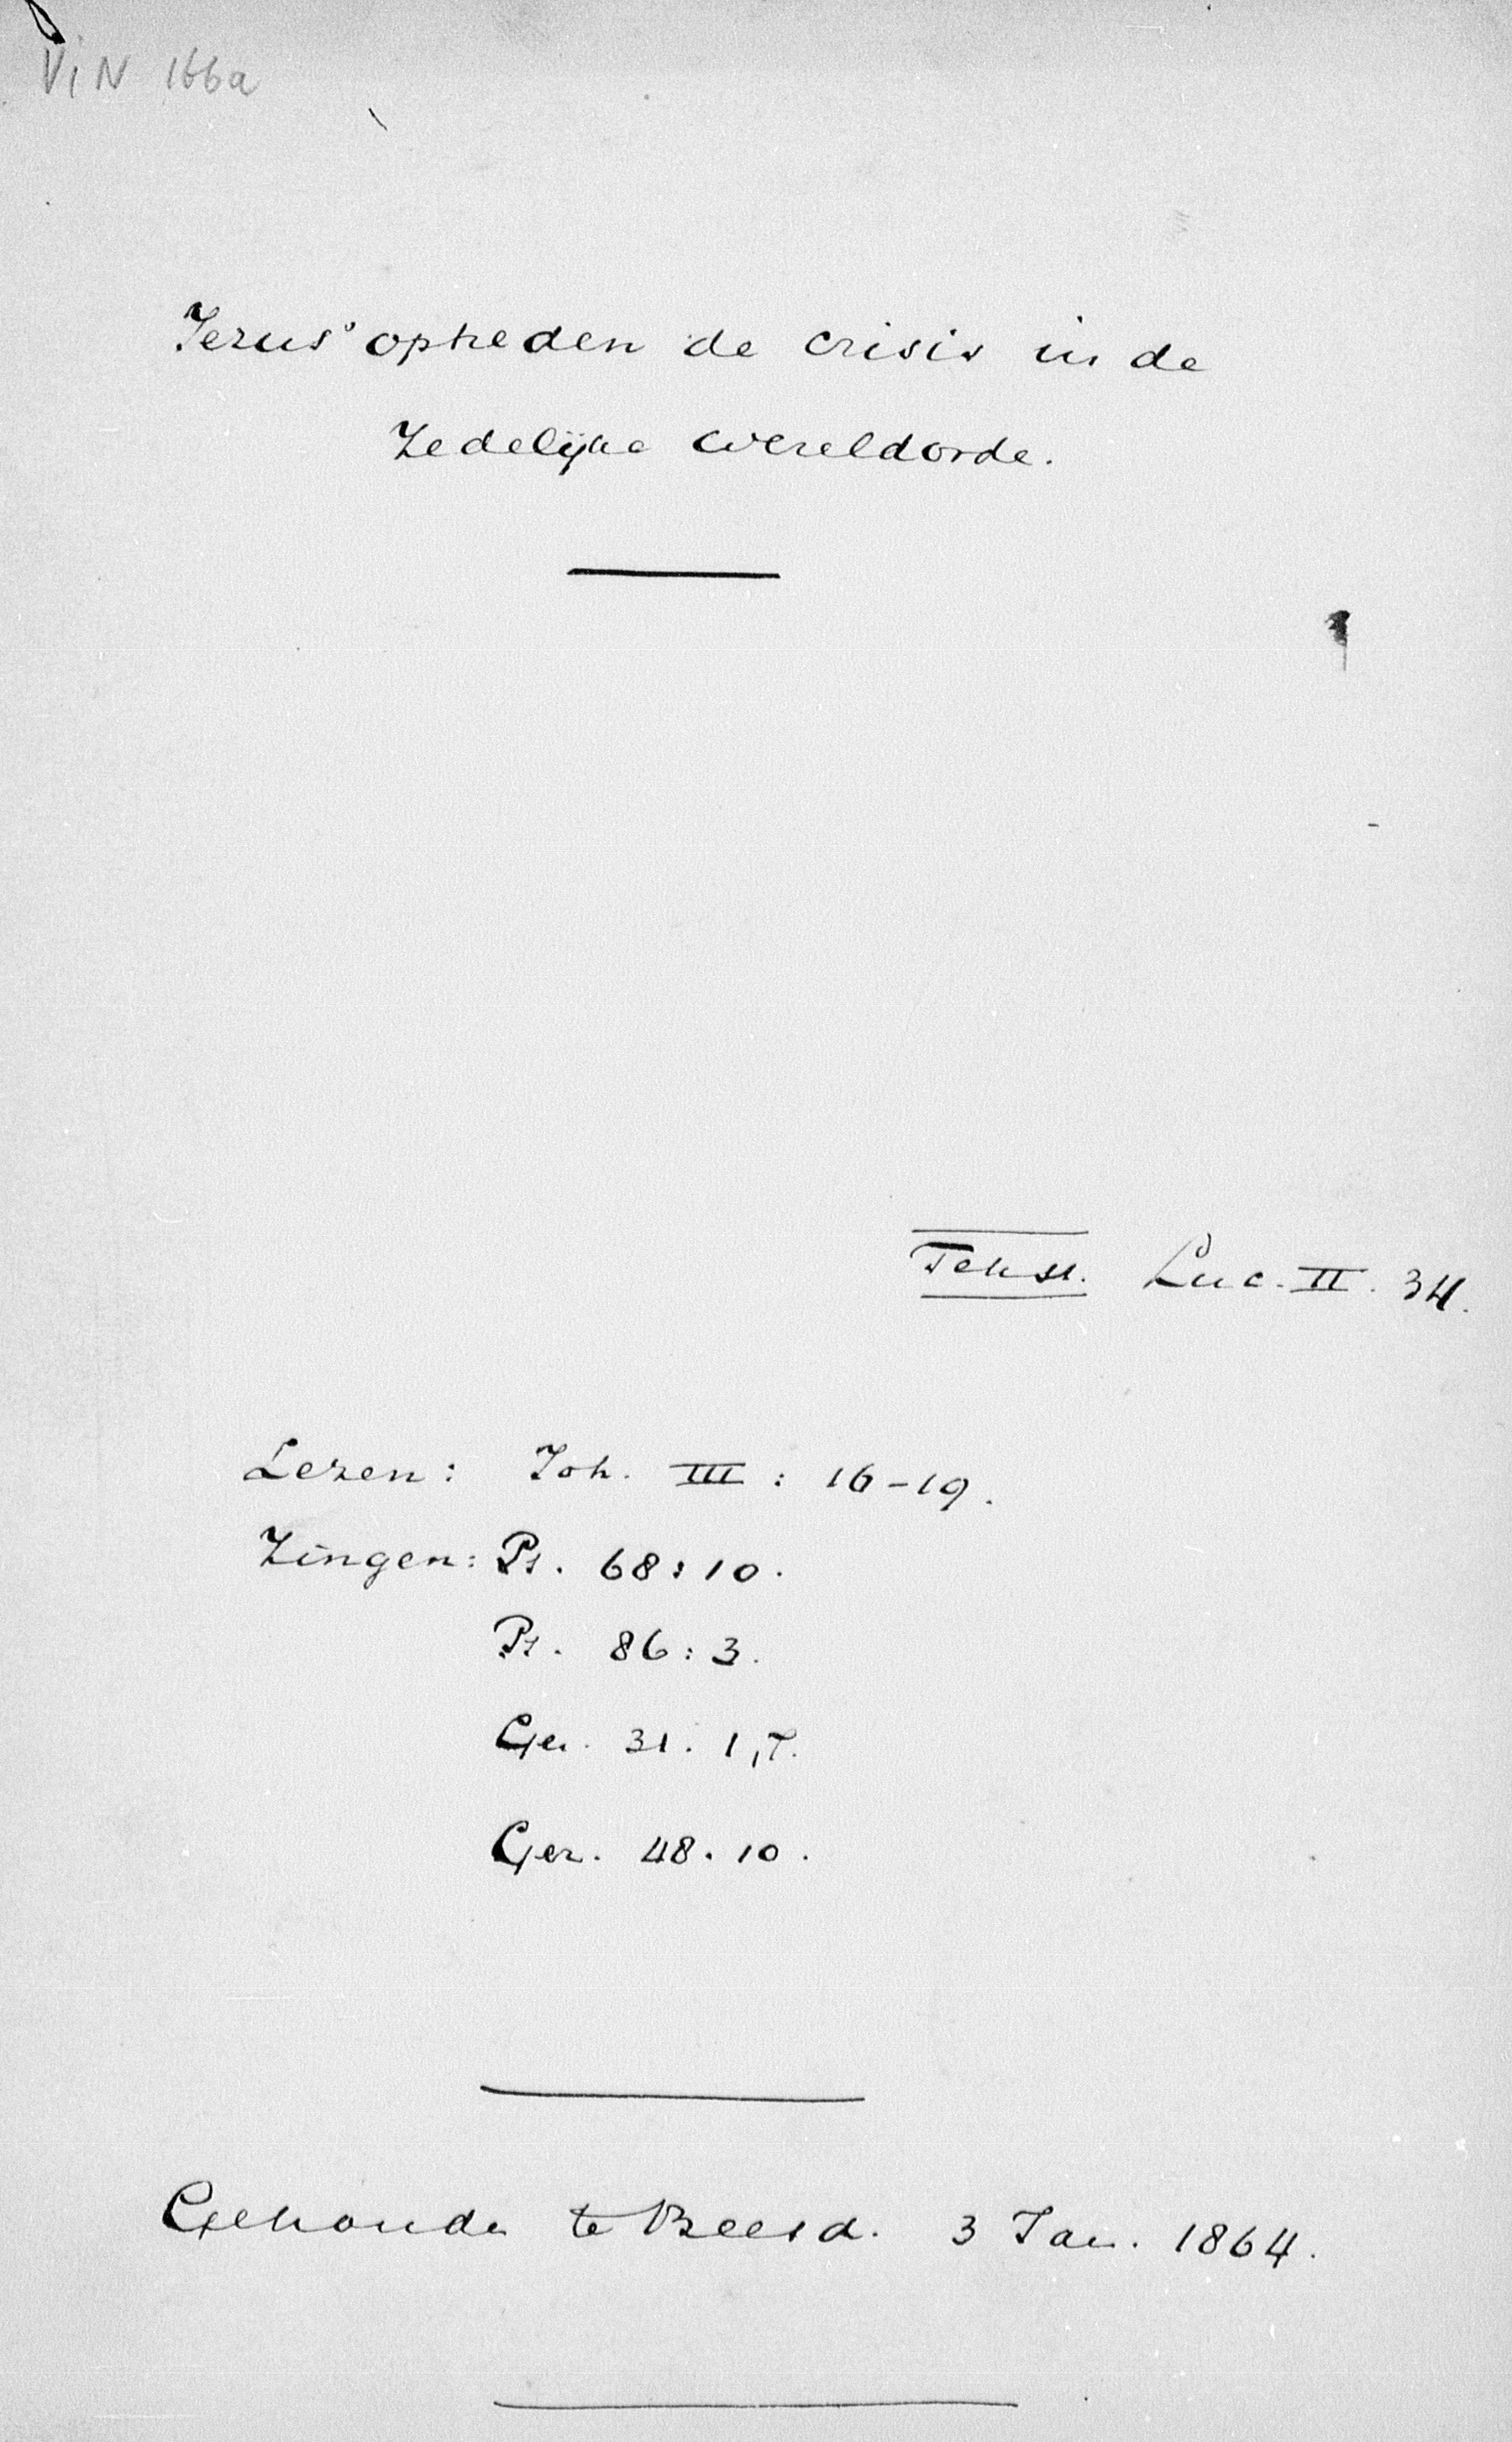 VIN 166a
Jezus' optreden de crisis in de
Zedelijke wereldorde.
Tekst. Luc. II. 34.
Lezen: Joh. III : 16-19.
Zingen: Ps. 68:10.
Ps. 86:3.
Gez. 31. 1,7.
Gez. 48. 10.
Gehouden te Beesd. 3 Jan. 1864.